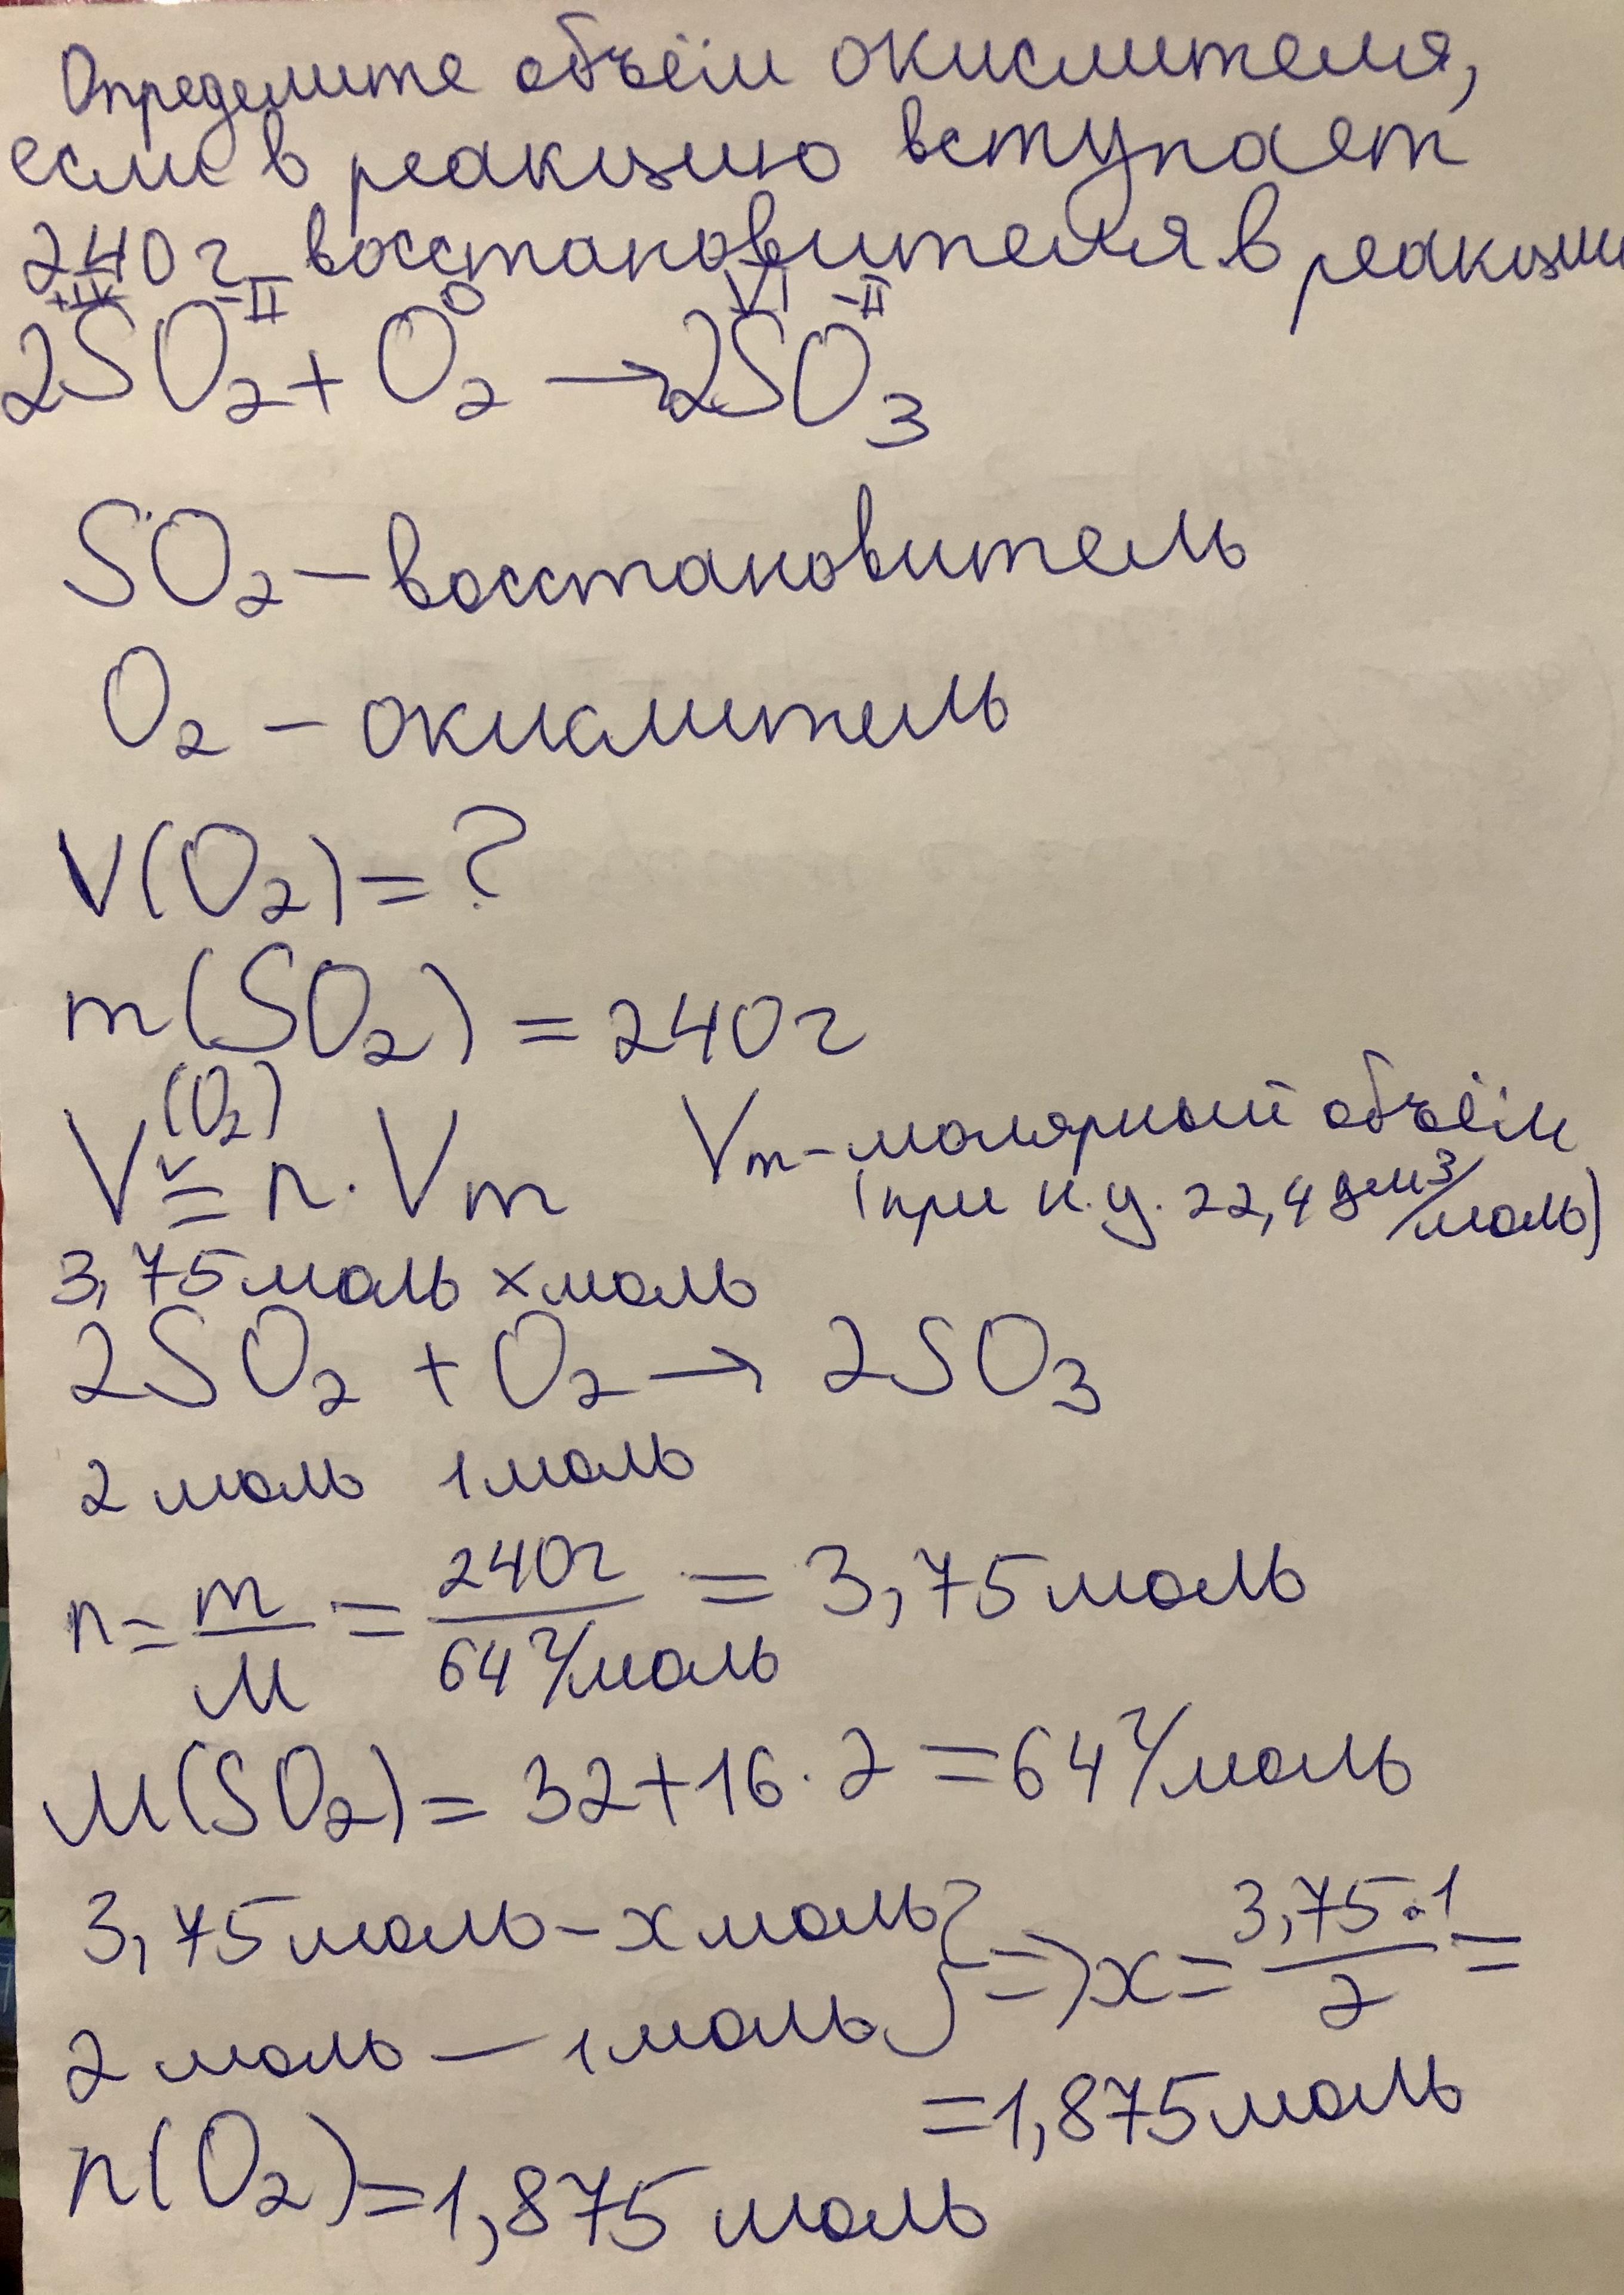 Определите объём окислителя,
если в реакцию вступает
240 г восстановителя в реакции
+IV -II 0 VI -II
2SO₂ + O₂ → 2SO₃
SO₂ – восстановитель
O₂ – окислитель
V(O₂) = ?
m(SO₂) = 240 г
V(O₂) = n · Vm Vm – молярный объём
(при н.у. 22,4 дм³/моль)
3,75 моль x моль
2SO₂ + O₂ → 2SO₃
2 моль 1 моль
n = m/M = 240г/64 г/моль = 3,75 моль
M(SO₂) = 32 + 16 · 2 = 64 г/моль
3,75 моль – x моль } ⇒ x = 3,75 · 1/2 =
2 моль – 1 моль
= 1,875 моль
n(O₂) = 1,875 моль